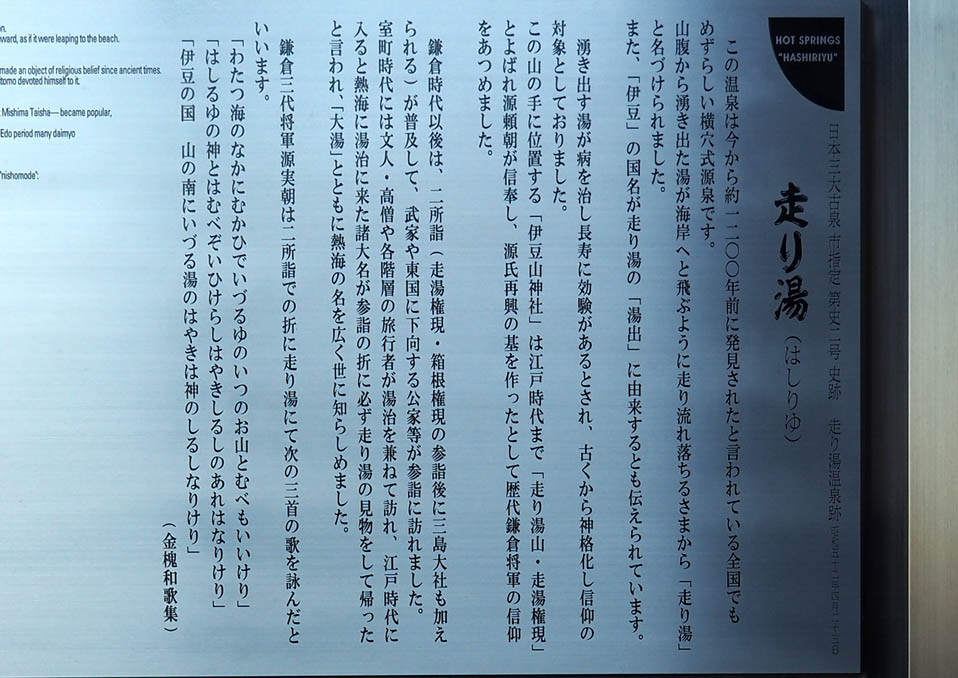 HOT SPRINGS
"HASHIRIYU"
日本三大古泉 市指定 第史二号 史跡 走り湯温泉跡 昭和五十二年四月二十三日
走り湯（はしりゆ）
この温泉は今から約一二〇〇年前に発見されたと言われている全国でも
めずらしい横穴式源泉です。
山腹から湧き出た湯が海岸へと飛ぶように走り流れ落ちるさまから「走り湯」
と名づけられました。
また、「伊豆」の国名が走り湯の「湯出」に由来するとも伝えられています。
湧き出す湯が病を治し長寿に効験があるとされ、古くから神格化し信仰の
対象としておりました。
この山の手に位置する「伊豆山神社」は江戸時代まで「走り湯山・走湯権現」
とよばれ源頼朝が信奉し、源氏再興の基を作ったとして歴代鎌倉将軍の信仰
をあつめました。
鎌倉時代以後は、二所詣（走湯権現・箱根権現の参詣後に三島大社も加え
られる）が普及して、武家や東国に下向する公家等が参詣に訪れました。
室町時代には文人・高僧や各階層の旅行者が湯治を兼ねて訪れ、江戸時代に
入ると熱海に湯治に来た諸大名が参詣の折に必ず走り湯の見物をして帰った
と言われ、「大湯」とともに熱海の名を広く世に知らしめました。
鎌倉三代将軍源実朝は二所詣での折に走り湯にて次の三首の歌を詠んだと
いいます。
「わたつ海のなかにむかひでいづるゆのいつのお山とむべもいいけり」
「はしるゆの神とはむべぞいひけらしはやきしるしのあれはなりけり」
「伊豆の国 山の南にいづる湯のはやきは神のしるしなりけり」
（金槐和歌集）
n.
ward, as if it were leaping to the beach.
made an object of religious belief since ancient times.
itomo devoted himself to it.
Mishima Taisha— became popular,
Edo period many daimyo
"nishomode":